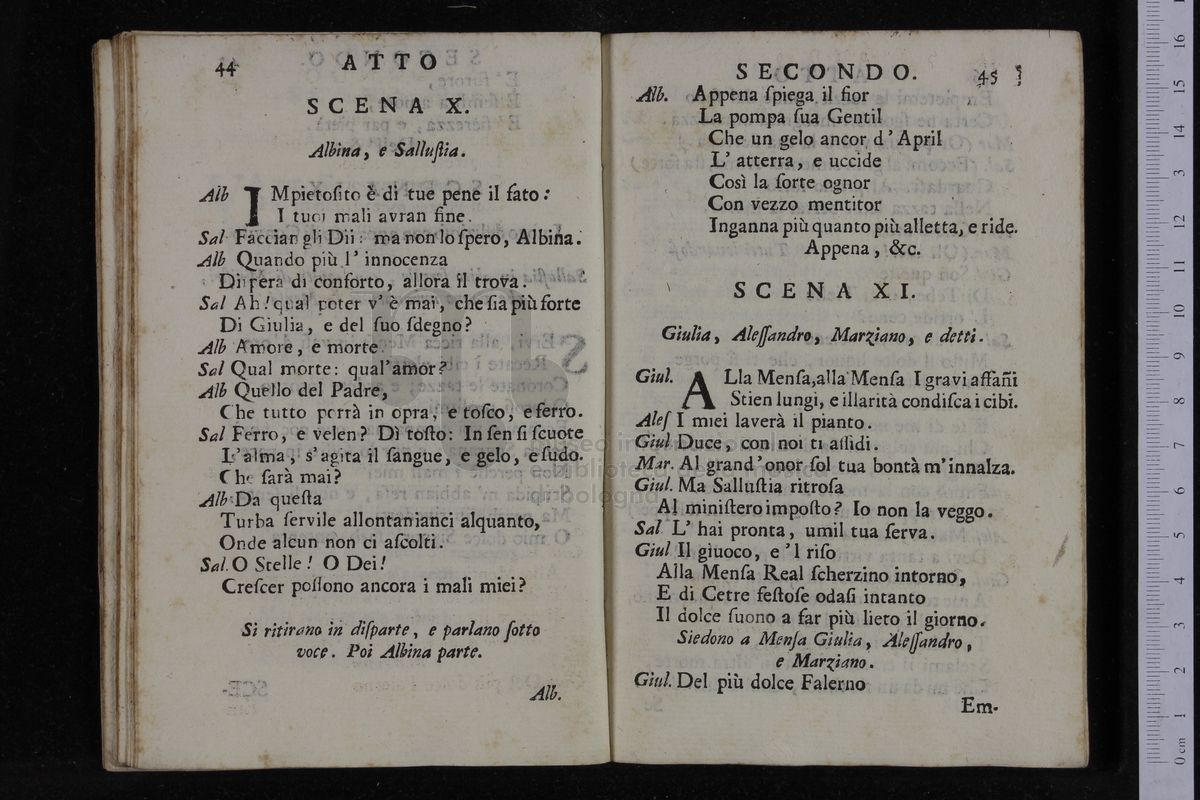 44 ATTO
SCENA X.
Albina, e Salluſtia.
Alb IMpietoſito è di tue pene il fato:
I tuoi mali avran fine.
Sal Faccian gli Dii: ma non lo ſpero, Albina.
Alb Quando più l' innocenza
Diſpera di conforto, allora il trova.
Sal Ah! qual poter v' è mai, che ſia più forte
Di Giulia, e del ſuo ſdegno?
Alb Amore, e morte.
Sal Qual morte: qual'amor?
Alb Quello del Padre,
Che tutto porrà in opra, e toſco, e ferro.
Sal Ferro, e velen? Dì toſto: In ſen ſi ſcuote
L'alma, s'agita il ſangue, e gelo, e ſudo.
Che ſarà mai?
Alb Da queſta
Turba ſervile allontanianci alquanto,
Onde alcun non ci aſcolti.
Sal. O Stelle! O Dei!
Creſcer poſſono ancora i mali miei?
Si ritirano in diſparte, e parlano ſotto
voce. Poi Albina parte.
Alb.
SECONDO. 45
Alb. Appena ſpiega il fior
La pompa ſua Gentil
Che un gelo ancor d' April
L' atterra, e uccide
Così la ſorte ognor
Con vezzo mentitor
Inganna più quanto più alletta, e ride.
Appena, &c.
SCENA XI.
Giulia, Aleſſandro, Marziano, e detti.
Giul. ALla Menſa, alla Menſa I gravi affañi
Stien lungi, e illarità condiſca i cibi.
Aleſ I miei laverà il pianto.
Giul Duce, con noi ti aſſidi.
Mar. Al grand'onor ſol tua bontà m'innalza.
Giul. Ma Salluſtia ritroſa
Al miniſtero impoſto? Io non la veggo.
Sal L' hai pronta, umil tua ſerva.
Giul Il giuoco, e 'l riſo
Alla Menſa Real ſcherzino intorno,
E di Cetre feſtoſe odaſi intanto
Il dolce ſuono a far più lieto il giorno.
Siedono a Menſa Giulia, Aleſſandro,
e Marziano.
Giul. Del più dolce Falerno
Em-